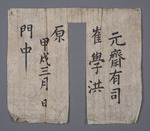 元齋有司
崔學洪
原
甲戌三月 日
門中